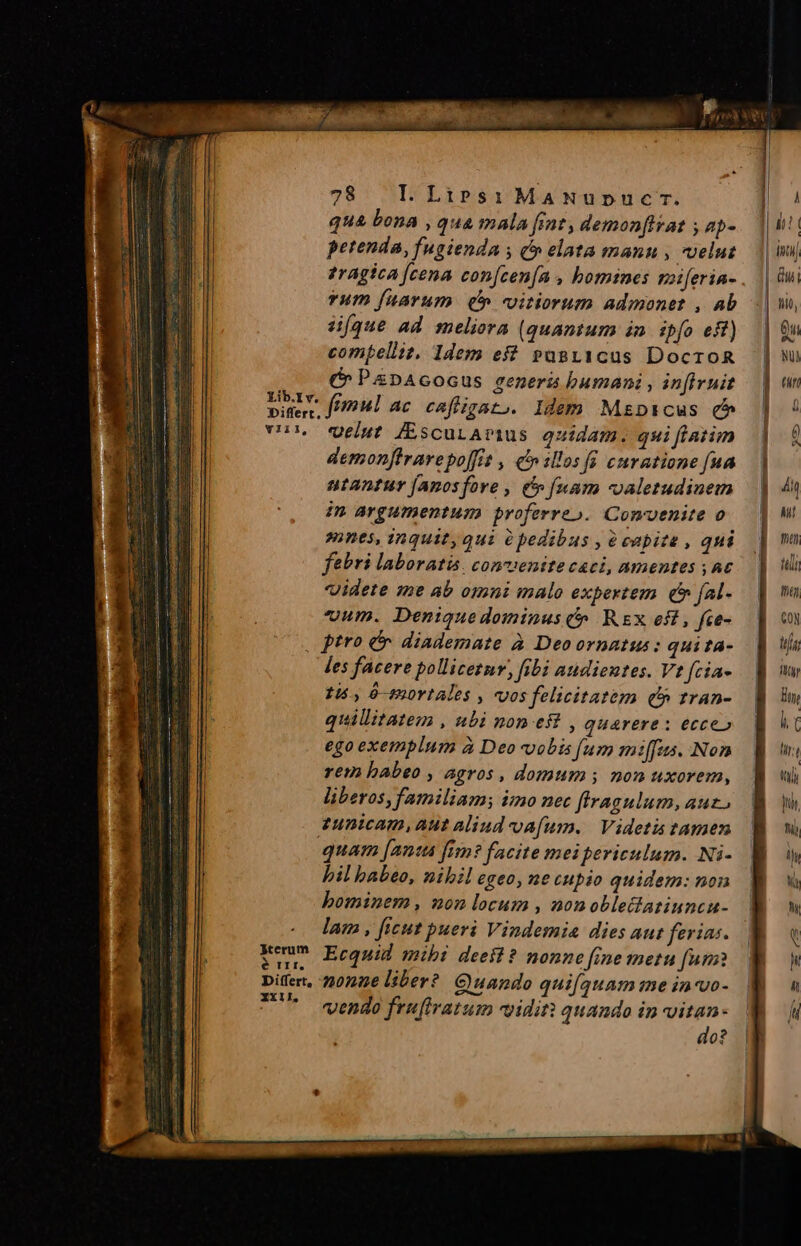 78 I. LIPSI MANUDUCT.
quæ bona, quæ mala ſint, demonſtrat; ap-
petenda, fugienda; & elata manu, velut
tragica ſcena conſcenſa, homines miſeria-
rum ſuarum & vitiorum admonet, ab
iiſque ad meliora (quantum in ipſo eſt)
compellit. Idem eſt PUBLICUS DOCTOR
& PÆDAGOGUS generis humani, inſtruit
Lib. IV. ſimul ac caſtigat. Idem MEDICUS &
Differt. VIII. velut ÆSCULAPIUS quidam. qui ſtatim
demonſtrare poſſit, & illos ſi curatione ſua
utantur ſanos fore, & ſuam valetudinem
in argumentum proferre. Convenite o-
mnes, inquit, qui è pedibus, è capite, qui
febri laboratis. convenite cæci, amentes; ac
videte me ab omni malo expertem & ſal-
vum. Denique dominus & REX eſt, ſce-
ptro & diademate à Deo ornatus: qui ta-
les facere pollicetur, ſibi audientes. Vt ſcia-
tis, ô mortales, vos felicitatem & tran-
quillitatem, ubi non eſt, quærere: ecce
ego exemplum à Deo vobis ſum miſſus. Non
rem habeo, agros, domum; non uxorem,
liberos, familiam; imo nec ſtragulum, aut
tunicam, aut aliud vaſum. Videtis tamen
quam ſanus ſim? facite mei periculum. Ni-
hil habeo, nihil egeo, ne cupio quidem: non
hominem, non locum, non oblectatiuncu-
lam, ſicut pueri Vindemiæ dies aut ferias.
Iterum è III. Ecquid mihi deeſt? nonne ſine metu ſum?
Differt. XXII. nonne liber? Quando quiſquam me in vo-
vendo fruſtratum vidit? quando in vitan-
do?